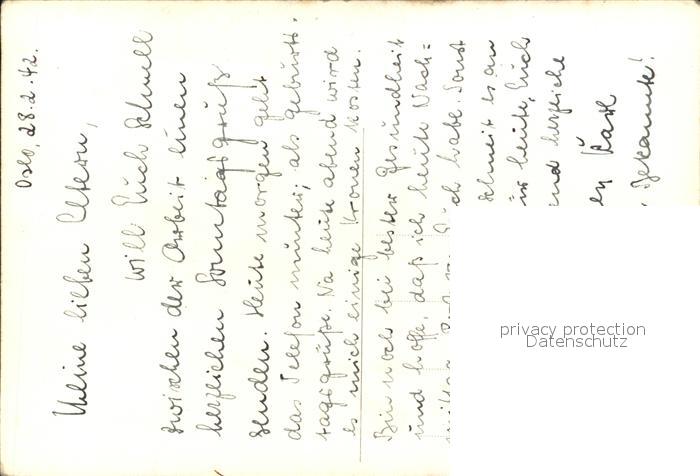 Oslo, 28.2.42.
Meine lieben Eltern,
will Euch schnell
zwischen der Arbeit einen
herzlichen Sonntagsgruß
senden. Heute morgen geht
das Telefon munter, als Geburts-
tagsgrüße. Na heute abend wird
es mich einige Kronen kosten.
Bin noch bei bester Gesundheit
und hoffe, daß ich heute Nach=
habe. Sonst
schneit es an
heute, Euch
und herzliche
Karl
Bekannte!
privacy protection
Datenschutz